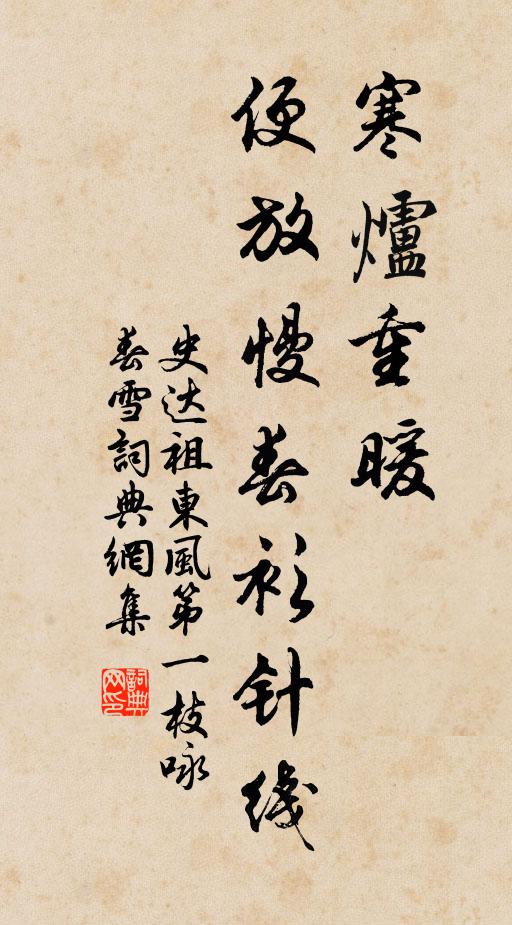 寒爐重暖
便放慢春衫针线
史达祖東風第一枝咏
春雪詞典網集
詞典网印